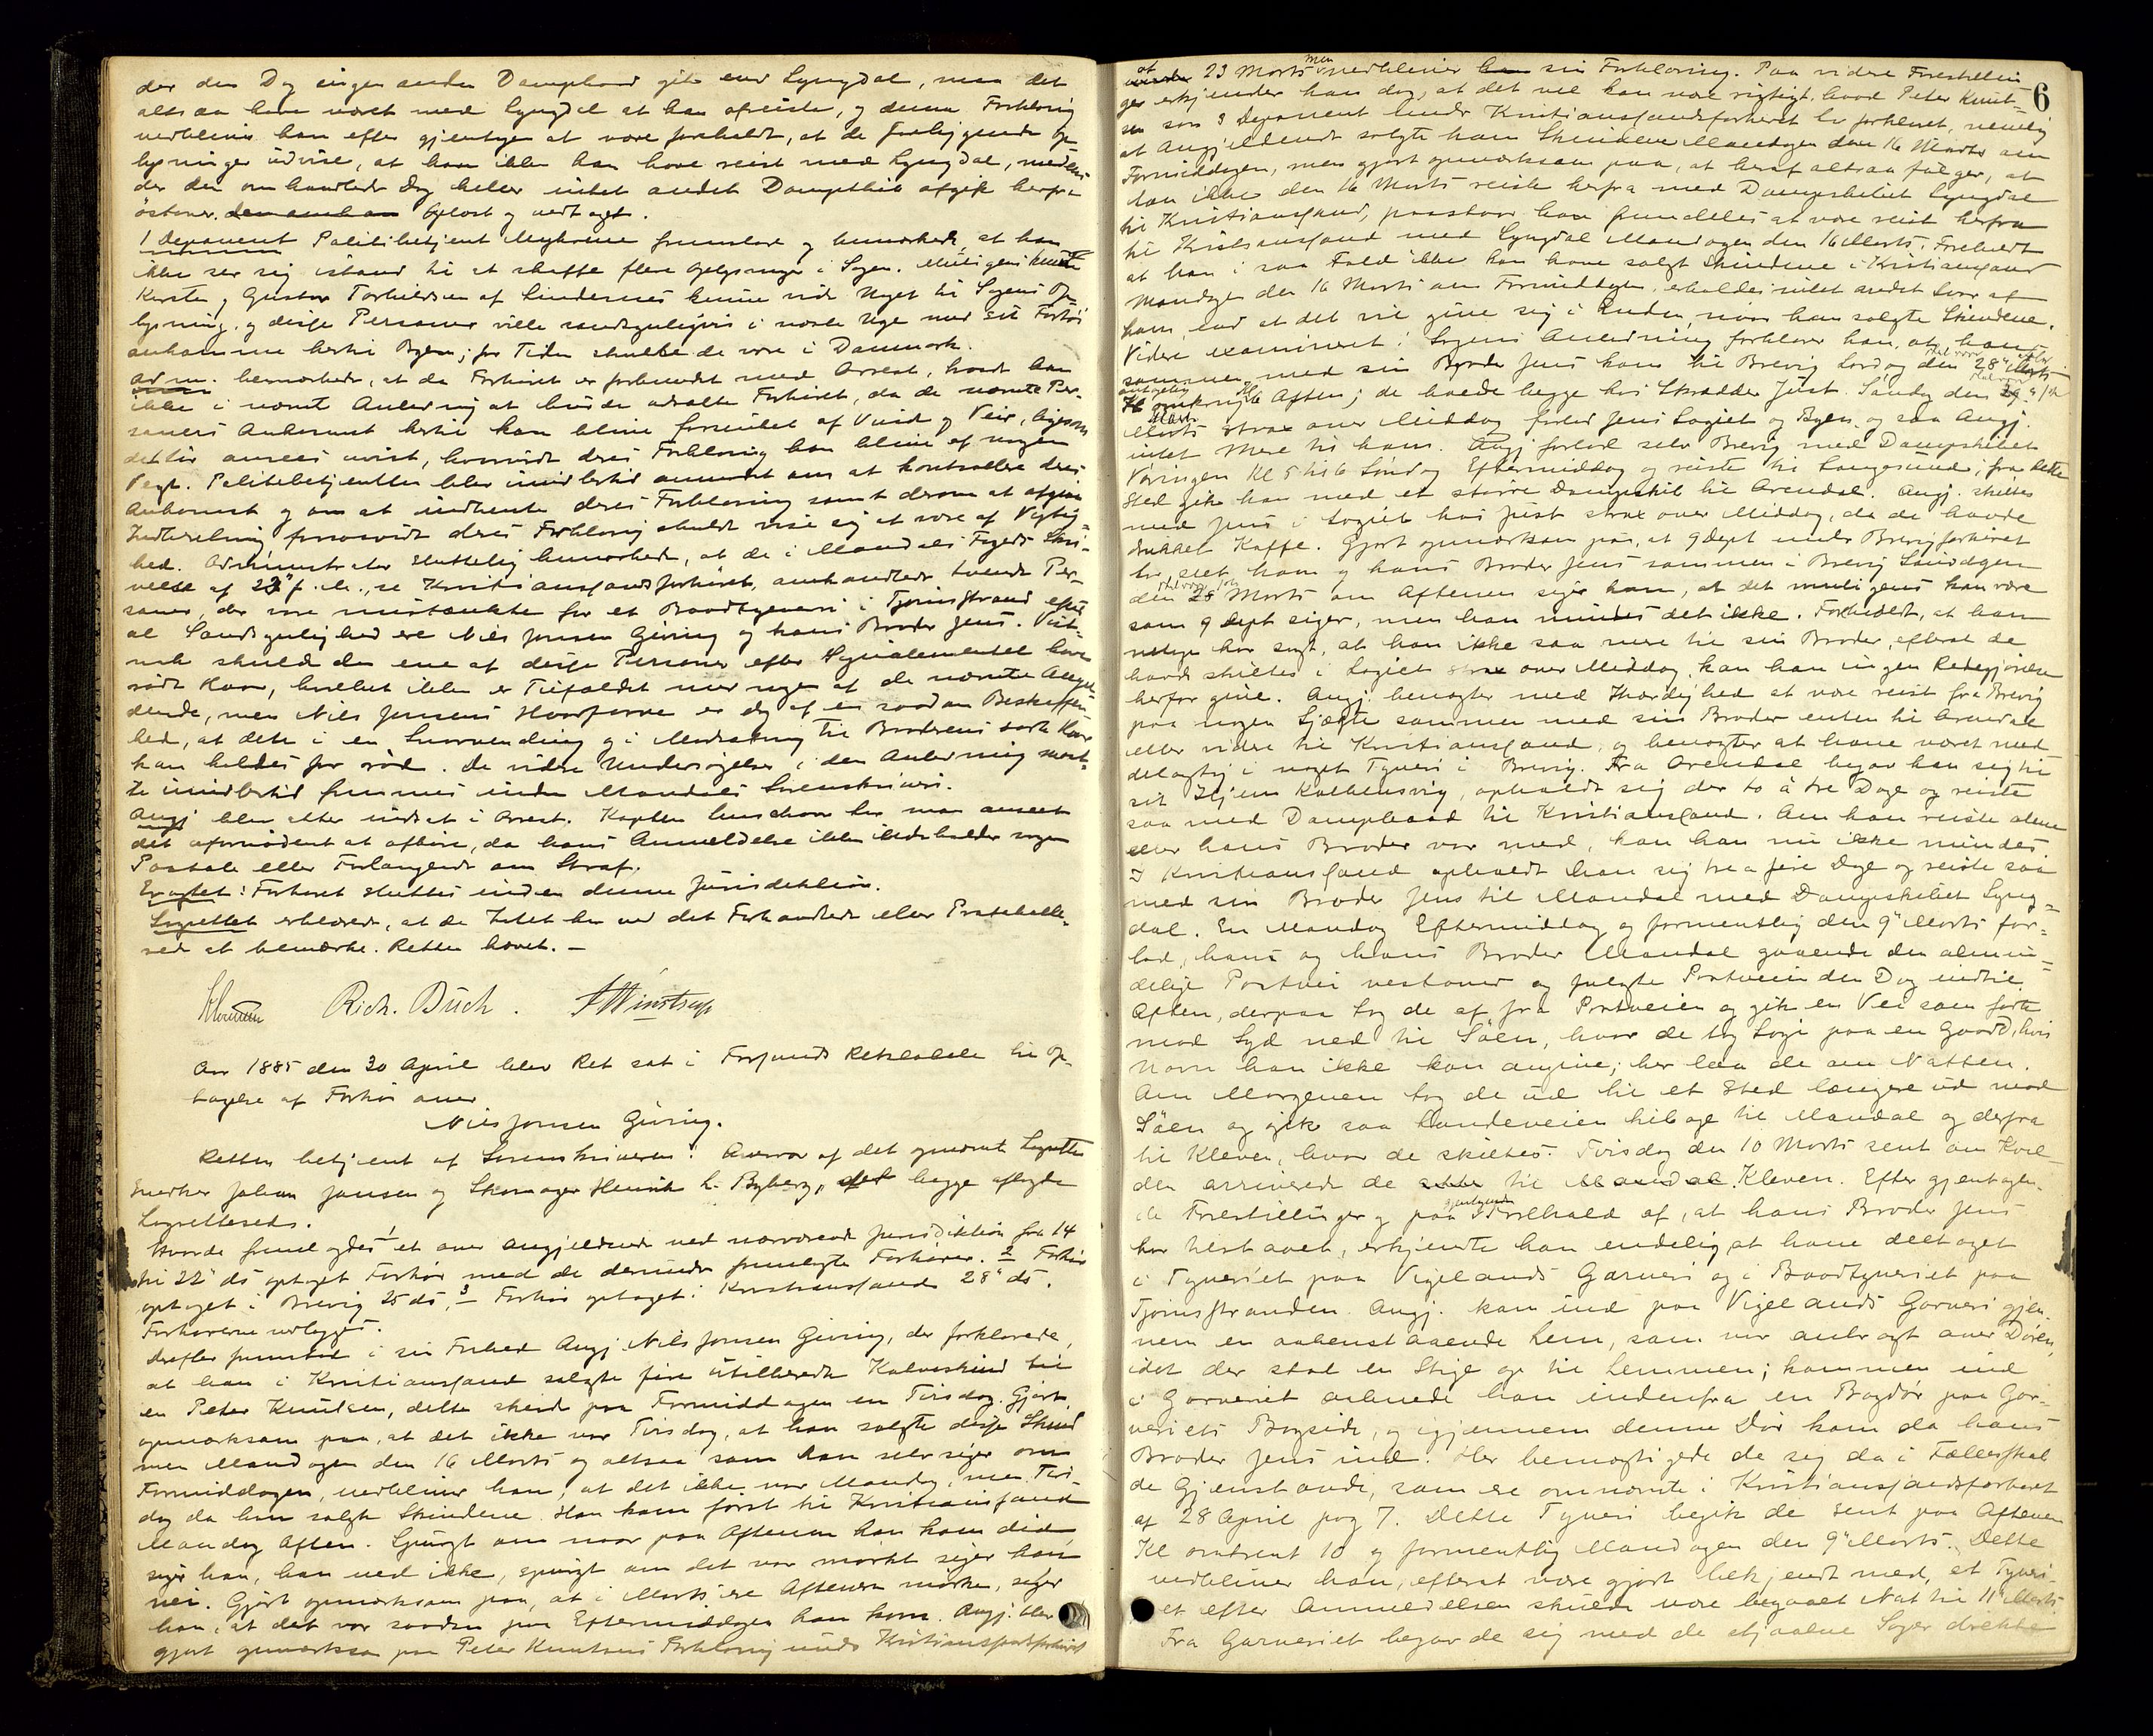 der den Dag ingen anden Dampbaad gik end Lyngdal, maa det
altsaa have været med Lyngdal at han afreiste, og denne Forklaring
vedbliver han efter gjentagen at være foreholdt, at de foreliggende Op-
lysninger udvise, at han ikke kan have reist med Lyngdal, medens
der den omhandlede Dag heller intet andet Dampskib afgik herfra
østover. Oplæst og vedtaget.
1 Deponent Politibetjent fremstod og bemærkede, at han
ikke ser sig istand til at skaffe flere Oplysninger i Sagen. Muligens kunde
Karsten og Gustav Torkildsen af Lindernes kunne vide Noget til Sagens Op-
lysning, og disse Personer ville sandsynligvis i næste Uge med sit Fartøi
ankomme hertil Byen; for Tiden skulle de være i Danmark.
Adm. bemærkede, at da Forhøret er forbundet med Arrest, fandt han
ikke i nævnte Anledning at burde udsætte Forhøret, da de nævnte Per-
soners Ankomst hertil kan blive forsinket af Vind og Veir, ligesom
det bør ansees uvist, hvorvidt deres Forklaring kan blive af nogen
Vegt. Politibetjenten blev imidlertid anmodet om at kontrollere deres
Ankomst og om at indhente deres Forklaring samt derom at afgive
Indberetning forsaavidt deres Forklaring skulde vise sig at være af Vigtig-
hed. Administrator sluttelig bemærkede, at de i Mandals Fogeds Skri-
velse af 23" f. M., se Kristianssandsforhøret, omhandlede tvende Per-
soner, der vare mistænkte for et Baadtyveri i Tjørnsstrand efter
al Sandsynlighed ere Nils Jonsen Giving og hans Broder Jens. Vist-
nok skulde den ene af disse Personer efter Signalementet have
rødt Haar, hvilket ikke er Tilfældet med nogen af de nævnte Angjæl-
dende, men Nils Jonsens Haarfarve er dog af en saadan Beskaffen-
hed, at dette i en Snarvending og i Modsætning til Broderens sorte Haar
kan holdes for rød. De videre Undersøgelser i den Anledning maat-
te imidlertid fremmes under Mandals Sorenskriveri.
Angj blev atter indsat i Arrest. Kaptein har man anseet
det ufornødent at afhøre, da hans Anmeldelse ikke indeholder nogen
Paatale eller Forlangende om Straf.
Eragtet: Forhøret sluttes inden denne Jurisdiktion.
Lagrettet erklærede, at de Intet har ved det Forhandlede eller Protokolle-
rede at bemærke. Retten hævet. –
Rich. Buch. Winstrup
Aar 1885 den 30 April blev Ret sat i Farsunds Retslokale til Op-
tagelse af Forhør over
Nils Jonsen Giving.
Retten betjent af Sorenskriveren i Overvær af det opnævnte Lagrette
Snedker Johan Jansen og Skomager Henrik L. Byberg, begge aflagde
Lagrettesed.
Havde fremlagdes 1 et over Angjældende ved nærværende Jurisdiktion fra 14
til 22" ds optaget Forhør med de derunder fremlagte Forhører. 2 Forhør
optaget i Brevig 25 ds, 3 Forhør optaget i Kristianssand 28" ds.
Forhørerne vedlægges.
Derefter fremstod i sin Frihed Angj Nils Jonsen Giving, der forklarede,
at han i Kristianssand solgte fire utilberedte Kalveskind til
en Peter Knutsen, dette skede paa Formiddagen en Tirsdag. Gjort
opmærksom paa, at det ikke var Tirsdag, at han solgte disse Skind
men Mandagen den 16 Marts og altsaa som han selv siger om
Formiddagen, vedbliver han, at det ikke var Mandag, men Tirs-
dag da han solgte Skindene. Han kom først til Kristianssand
Mandag Aften. Spurgt om naar paa Aftenen han kom did
siger han, han ved ikke, spurgt om det var mørkt siger han
nei. Gjort opmærksom paa, at i Marts ere Aftenerne mørke, siger
han, at det var saadan paa Eftermiddagen han kom. Angj. blev
gjort opmærksom paa Peter Knutsens Forklaring under Kristianssandsforhøret
6
af 23 Marts men vedbliver sin Forklaring. Paa videre Forestillin-
ger erkjender han dog, at det vel kan være rigtigt, hvad Peter Knut-
sen som 3 Deponent under Kristianssandsforhøret har forklaret, nemlig
at Angjældende solgte ham Skindene Mandagen den 16 Marts om
Formiddagen, men gjort opmærksom paa, at heraf altsaa følger, at
han ikke den 16 Marts reiste herfra med Dampskibet Lyngdal
til Kristianssand, paastaar han fremdeles at være reist herfra
til Kristianssand med Lyngdal Mandagen den 16 Marts. Foreholdt
at han i saa Fald ikke kan have solgt Skindene i Kristianssand
Mandagen den 16 Marts om Formiddagen, erholdes intet andet Svar af
ham, end at det vil give sig i Enden, naar han solgte Skindene.
Videre examineret i Sagens Anledning forklarer han, at han
sammen med sin Broder Jens kom til Brevig Lørdag den 28"
omkring Kl 6 Aften; de boede begge hos Skrædder Just. Søndag den
Marts strax over Middag forlod Jens Logiet og Byen, og saa Angj.
intet mere til ham. Angj forlod selv Brevig med Dampskibet
Vøringen Kl 5 til 6 Søndag Eftermiddag og reiste til Langesund; fra dette
Sted gik han med et større Dampskib til Arendal. Angj. skiltes
med Jens i Logiet hos Just strax over Middag, da de havde
drukket Kaffe. Gjort opmærksom paa, at 9 Dept under Brevigforhøret
har seet ham og hans Broder Jens sammen i Brevig Søndagen
den 28 Marts om Aftenen siger han, at det muligens kan være
som 9 Dept siger, men han mindes det ikke. Foreholdt, at han
nylig har sagt, at han ikke saa mere til sin Broder, efterat de
havde skiltes i Logiet strax over Middag, kan han ingen Redegjørelse
herfor give. Angj. benægter med Haardighed at være reist fra Brevig
paa nogen Sjægte sammen med sin Broder enten til Arendal
eller videre til Kristianssand, og benægter at have været med
delagtig i noget Tyveri i Brevig. Fra Arendal begav han sig til
sit Hjem Kalvehusvig, opholdt sig der to à tre Dage og reiste
saa med Dampbaad til Kristianssand. Om han reiste alene
eller hans Broder var med, kan han nu ikke mindes
I Kristianssand opholdt han sig tre a fire Dage og reiste saa
med sin Broder Jens til Mandal med Dampskibet Lyng-
dal. En Mandag Eftermiddag og formentlig den 9" Marts for-
lod, han og hans Broder Mandal gaaende den almin-
delige Postvei vestover og fulgte Postveien den Dag indtil
Aften, derpaa tog de af fra Postveien og gik en Vei som førte
mod Syd ned til Søen, hvor de tog Logi paa en Gaard, hvis
Navn han ikke kan angive; her laa de om Natten.
Om Morgenen tog de ud til et Sted længere ud mod
Søen og gik saa Landeveien tilbage til Mandal og derfra
til Kleven, hvor de skiltes. Tirsdag den 10 Marts sent om Kvel-
den arriverede de til Kleven. Efter gjentagen-
de Forestillinger og paa gjentagende Forehold af, at hans Broder Jens
har tilstaaet, erkjendte han endelig at have deeltaget
i Tyveriet paa Vigelands Garveri og i Baadtyveriet paa
Tjørnsstranden. Angj. kom ind paa Vigelands Garveri gjen-
nem en aabenstaaende Lem, som var anbragt over Døren,
idet der stod en Stige op til Lemmen; kommen ind
i Garveriet aabnede han indenfra en Bagdør paa Gar-
veriets Bagside, og igjennem denne Dør kom da hans
Broder Jens ind. Her bemægtigede de sig da i Fællesskab
de Gjenstande, som ere omnævnte i Kristianssandsforhøret
af 28 April pag 7. Dette Tyveri begik de sent paa Aftenen
Kl omtrent 10 og formentlig Mandagen den 9" Marts. Dette
vedbliver han, efterat være gjort bekjendt med, at Tyveri-
et efter Anmeldelsen skulde være begaaet Nat til 11" Marts.
Fra Garveriet begav de sig med de stjaalne Sager direkte